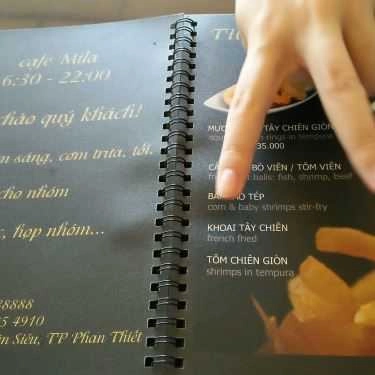 cafe Mila
6:30 - 22:00
chào quý khách!
sáng, cơm trưa, tối.
cho nhóm
họp nhóm...
8888
5 4910
Siêu, TP Phan Thiết
TÂY CHIÊN GIÒN
rings in tempura
35.000
BÒ VIÊN / TÔM VIÊN
balls: fish, shrimp, beef
TÉP
corn & baby shrimps stir-fry
KHOAI TÂY CHIÊN
french fried
TÔM CHIÊN GIÒN
shrimps in tempura